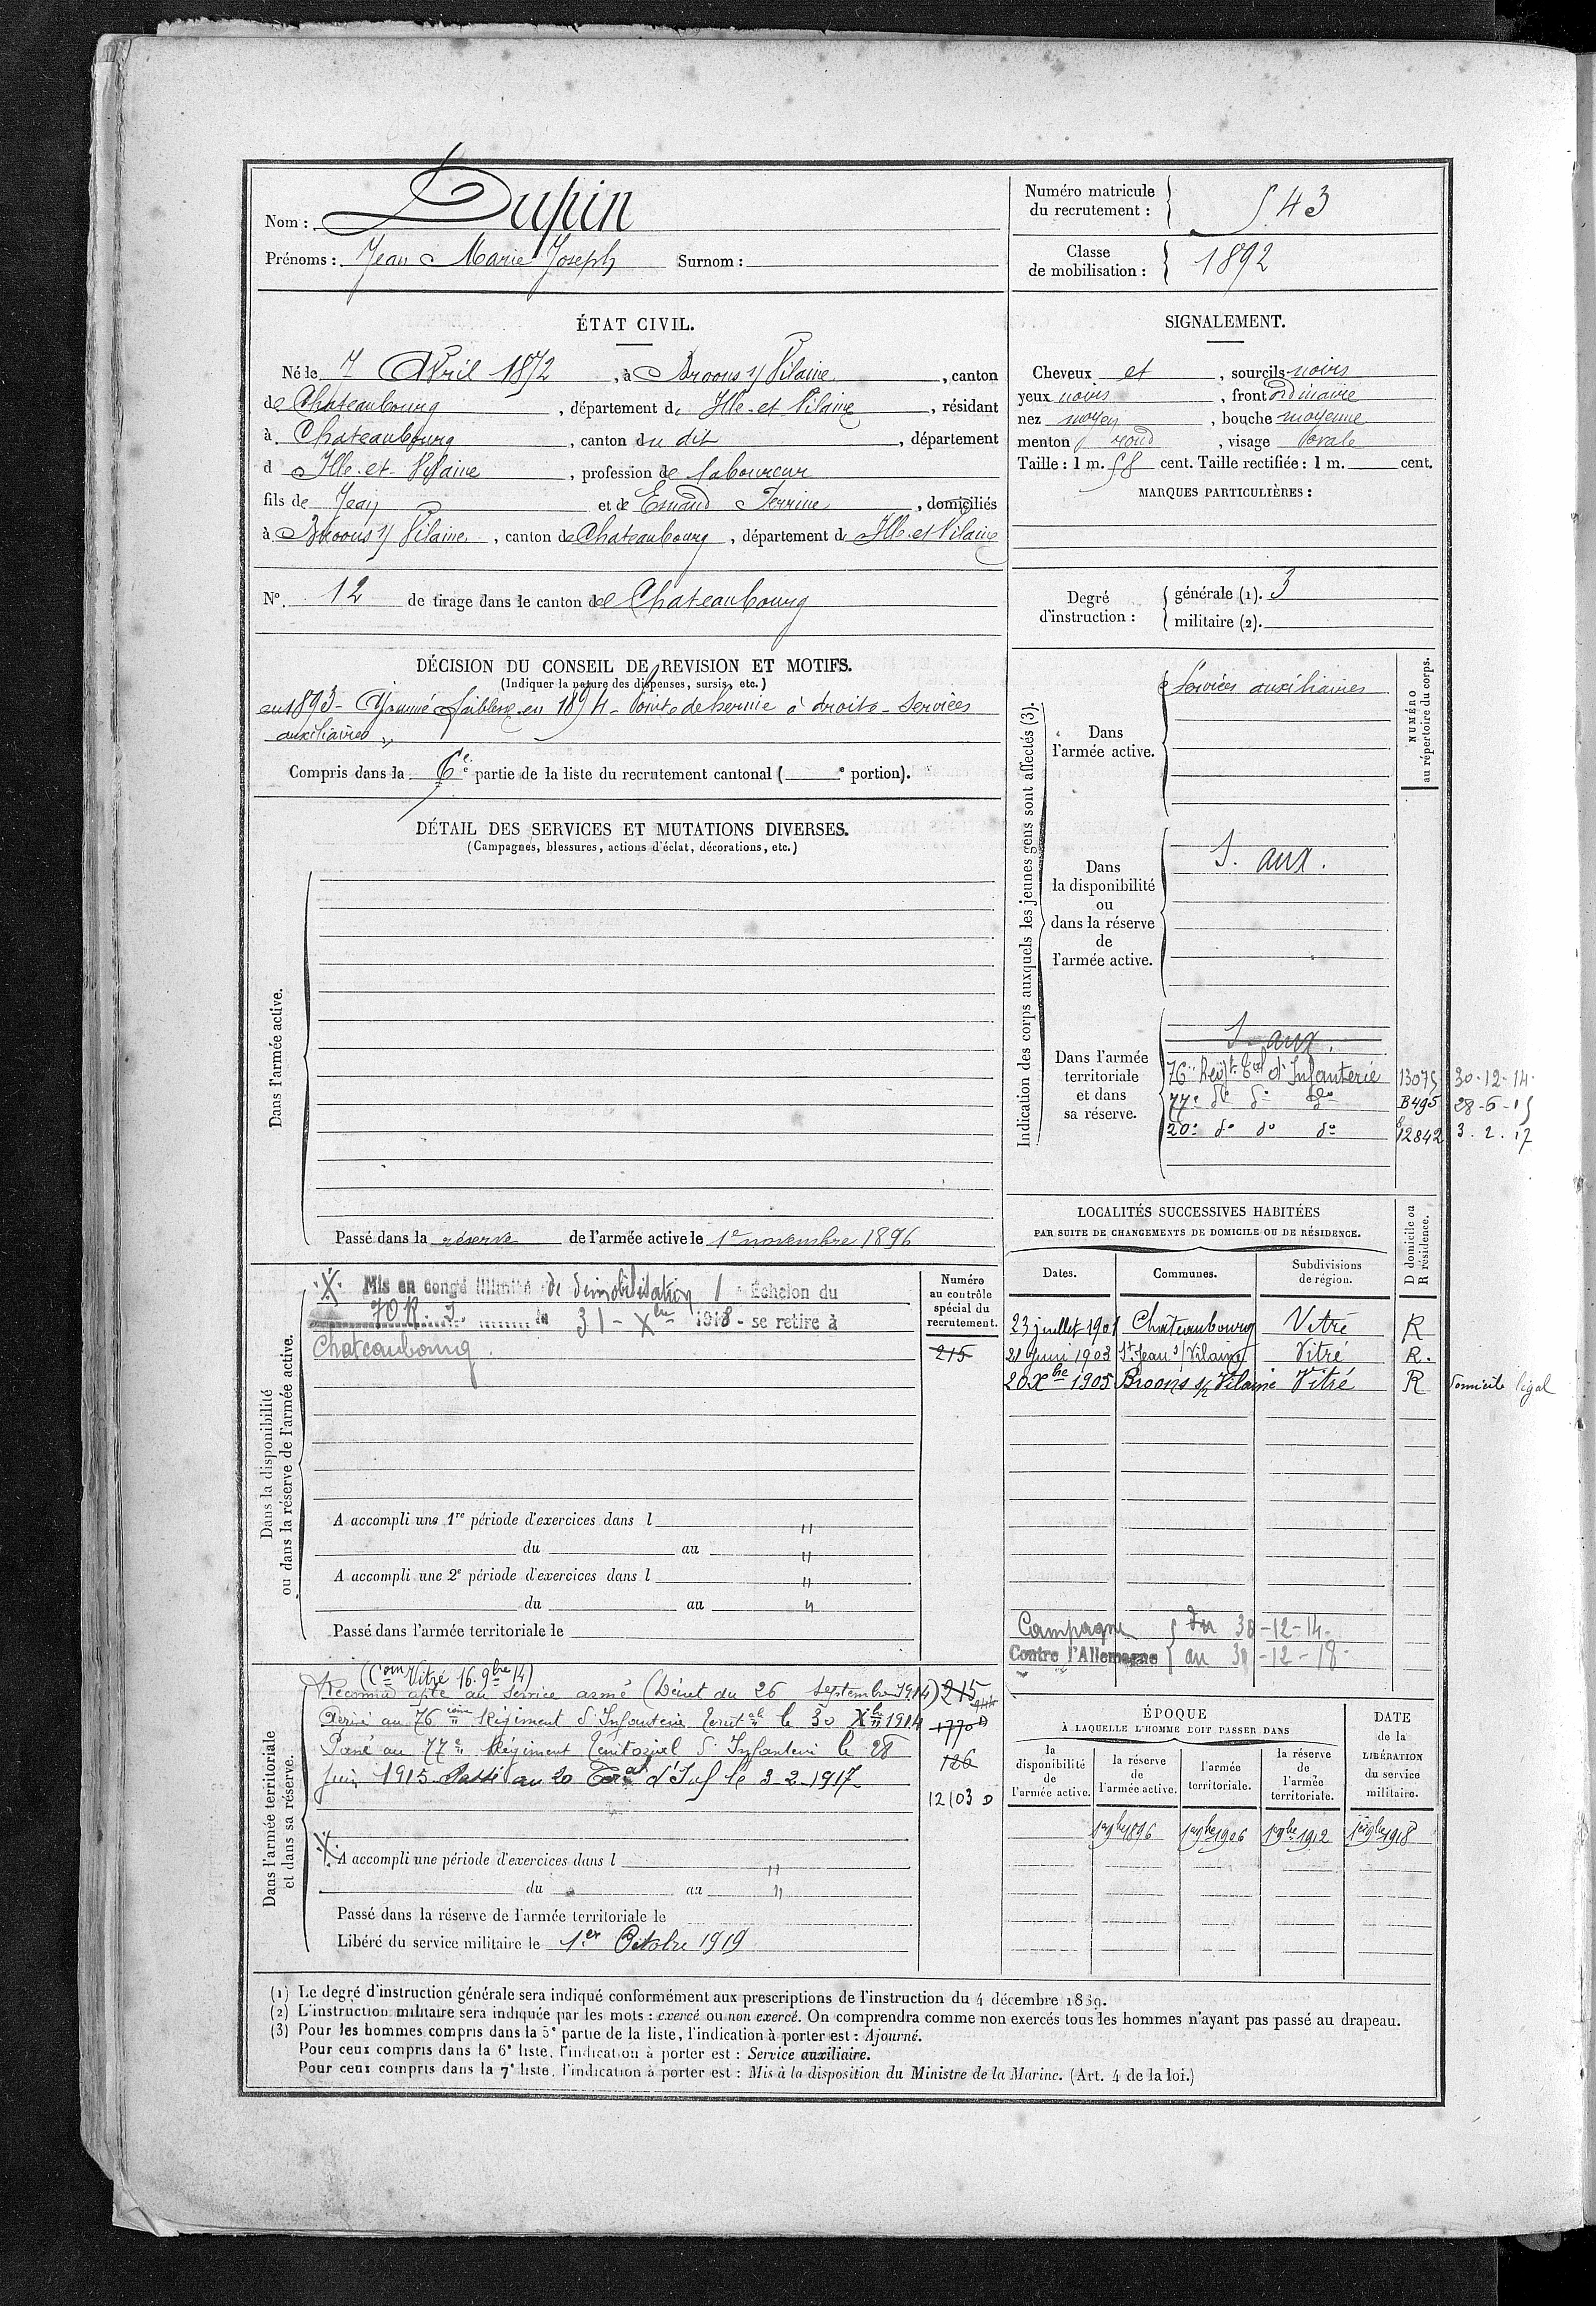 Nom : Dupin
Prénoms : Jean Marie Joseph Surnom :
Numéro matricule du recrutement : 543
Classe de mobilisation : 1892
ÉTAT CIVIL.
Né le 7 Avril 1872, à Broons s/ Vilaine, canton
de Chateaubourg, département d Ille-et-Vilaine, résidant
à Chateaubourg, canton du dit, département
d Ille-et-Vilaine, profession de laboureur
fils de Jean et de Esnaud Perrine, domiciliés
à Broons s/ Vilaine, canton de Chateaubourg, département d Ille-et-Vilaine
N°. 12 de tirage dans le canton de Chateaubourg
SIGNALEMENT.
Cheveux et, sourcils noirs
yeux noirs, front ordinaire
nez moyen, bouche moyenne
menton rond, visage ovale
Taille : 1 m. 58 cent. Taille rectifiée : 1 m. cent.
MARQUES PARTICULIÈRES :
Degré d'instruction :
générale (1). 3
militaire (2).
DÉCISION DU CONSEIL DE REVISION ET MOTIFS.
(Indiquer la nature des dispenses, sursis, etc.)
en 1893 - Ajourné faiblesse en 1894 - Pointe de hernie à droite - Services
auxiliaires
Compris dans la 6e partie de la liste du recrutement cantonal ( e portion).
DÉTAIL DES SERVICES ET MUTATIONS DIVERSES.
(Campagnes, blessures, actions d'éclat, décorations, etc.)
Dans l'armée active.
Passé dans la réserve de l'armée active le 1er novembre 1896
Indication des corps auxquels les jeunes gens sont affectés (3).
NUMÉRO au répertoire du corps.
Dans l'armée active.
Services auxiliaires
Dans la disponibilité ou dans la réserve de l'armée active.
S. aux.
Dans l'armée territoriale et dans sa réserve.
S. aux.
76e Regt Tal d'Infanterie 13075 30-12-14
77e do do do B495 28-6-15
20e do do do 12842 3.2.17
LOCALITÉS SUCCESSIVES HABITÉES
PAR SUITE DE CHANGEMENTS DE DOMICILE OU DE RÉSIDENCE.
D domicile ou R résidence.
Dates. Communes. Subdivisions de région.
23 juillet 1901 Chateaubourg Vitré R
21 Juin 1903 St Jean s/ Vilaine Vitré R.
20 Xbre 1905 Broons s/ Vilaine Vitré R domicile légal
Campagne du 30-12-14
Contre l'Allemagne au 30-12-18
Dans la disponibilité ou dans la réserve de l'armée active.
Numéro au contrôle spécial du recrutement.
X Mis en congé illimité de démobilisation 1 Échelon du
70 R. I. le 31 - Xbre 1918 - se retire à
Chateaubourg.
215
A accompli une 1re période d'exercices dans l "
du au "
A accompli une 2e période d'exercices dans l "
du au "
Passé dans l'armée territoriale le
Dans l'armée territoriale et dans sa réserve.
(Com on Vitré 16. 9bre 14)
Reconnu apte au service armé (Décret du 26 septembre 1914) 215
Arrivé au 76ième Régiment d'Infanterie territale le 30 Xbre 1914 1770 D
Passé au 77e Régiment Territorial d'Infanterie le 28 126
Juin 1915 Passé au 20 Teral d'Inf le 3-2-1917 12103 D
X
A accompli une période d'exercices dans l "
du au "
Passé dans la réserve de l'armée territoriale le
Libéré du service militaire le 1er Octobre 1919
ÉPOQUE
À LAQUELLE L'HOMME DOIT PASSER DANS
la disponibilité de l'armée active.
la réserve de l'armée active.
l'armée territoriale.
la réserve de l'armée territoriale.
DATE de la LIBÉRATION du service militaire.
1er 9bre 1896 1er 9bre 1906 1er 9bre 1912 1er 9bre 1918
(1) Le degré d'instruction générale sera indiqué conformément aux prescriptions de l'instruction du 4 décembre 1889.
(2) L'instruction militaire sera indiquée par les mots : exercé ou non exercé. On comprendra comme non exercés tous les hommes n'ayant pas passé au drapeau.
(3) Pour les hommes compris dans la 5e partie de la liste, l'indication à porter est : Ajourné.
Pour ceux compris dans la 6e liste, l'indication à porter est : Service auxiliaire.
Pour ceux compris dans la 7e liste, l'indication à porter est : Mis à la disposition du Ministre de la Marine. (Art. 4 de la loi.)